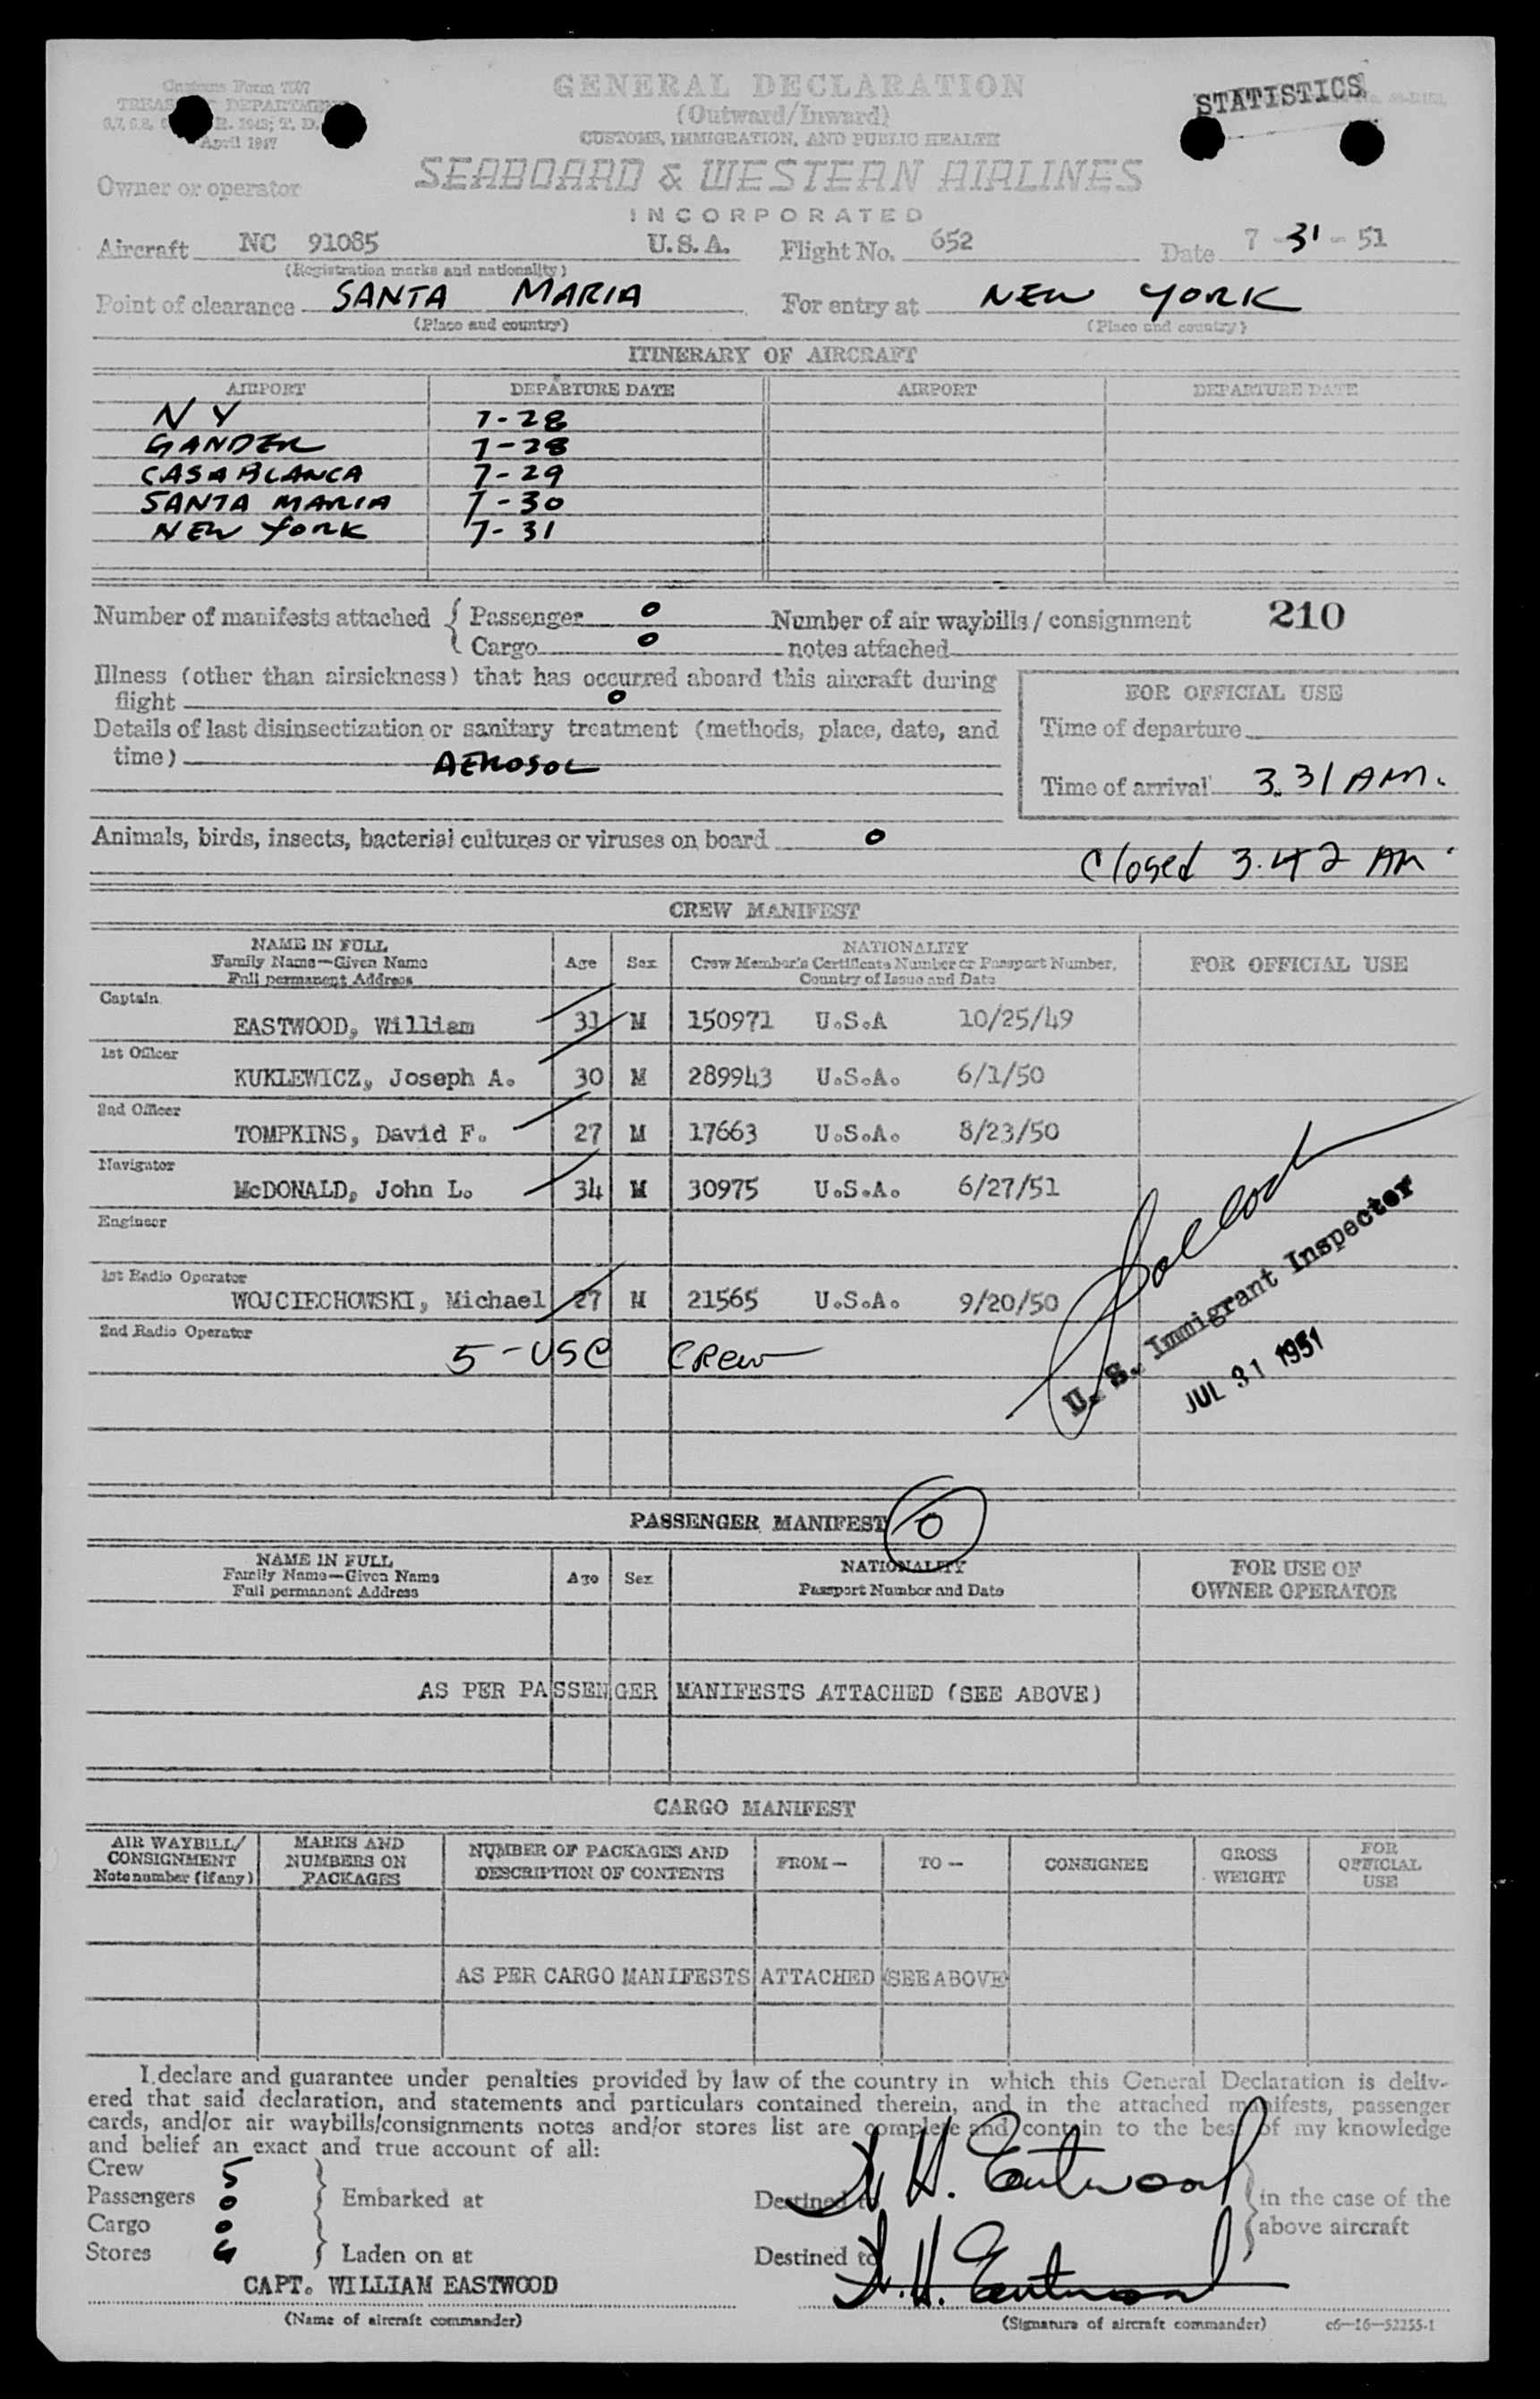 Customs Form 7507
TREASURY DEPARTMENT
April 1947
STATISTICS
GENERAL DECLARATION
(Outward/Inward)
CUSTOMS, IMMIGRATION, AND PUBLIC HEALTH
Owner or operator SEABOARD & WESTERN AIRLINES
INCORPORATED
Aircraft NC 91085 U.S.A. Flight No. 652 Date 7-31-51
(Registration marks and nationality)
Point of clearance SANTA MARIA For entry at NEW YORK
(Place and country) (Place and country)
ITINERARY OF AIRCRAFT
AIRPORT DEPARTURE DATE AIRPORT DEPARTURE DATE
NY 7-28
GANDER 7-28
CASABLANCA 7-29
SANTA MARIA 7-30
NEW YORK 7-31
Number of manifests attached { Passenger 0 Number of air waybills/consignment 210
Cargo 0 notes attached
Illness (other than airsickness) that has occurred aboard this aircraft during
flight 0
FOR OFFICIAL USE
Details of last disinsectization or sanitary treatment (methods, place, date, and
time) AEROSOL
Time of departure
Time of arrival 3.31 AM.
Animals, birds, insects, bacterial cultures or viruses on board 0
Closed 3.42 AM
CREW MANIFEST
NAME IN FULL
Family Name—Given Name
Full permanent Address
Age Sex NATIONALITY
Crew Member's Certificate Number or Passport Number,
Country of Issue and Date
FOR OFFICIAL USE
Captain
EASTWOOD, William 31 M 150971 U.S.A 10/25/49
1st Officer
KUKLEWICZ, Joseph A. 30 M 289943 U.S.A. 6/1/50
2nd Officer
TOMPKINS, David F. 27 M 17663 U.S.A. 8/23/50
Navigator
McDONALD, John L. 34 M 30975 U.S.A. 6/27/51
Engineer
1st Radio Operator
WOJCIECHOWSKI, Michael 27 M 21565 U.S.A. 9/20/50
2nd Radio Operator
5-USC CREW
U. S. Immigrant Inspector
JUL 31 1951
PASSENGER MANIFEST 0
NAME IN FULL
Family Name—Given Name
Full permanent Address
Age Sex NATIONALITY
Passport Number and Date
FOR USE OF
OWNER OPERATOR
AS PER PASSENGER MANIFESTS ATTACHED (SEE ABOVE)
CARGO MANIFEST
AIR WAYBILL/
CONSIGNMENT
Note number (if any)
MARKS AND
NUMBERS ON
PACKAGES
NUMBER OF PACKAGES AND
DESCRIPTION OF CONTENTS
FROM— TO— CONSIGNEE
GROSS
WEIGHT
FOR
OFFICIAL
USE
AS PER CARGO MANIFESTS ATTACHED (SEE ABOVE)
I declare and guarantee under penalties provided by law of the country in which this General Declaration is deliv-
ered that said declaration, and statements and particulars contained therein, and in the attached manifests, passenger
cards, and/or air waybills/consignments notes and/or stores list are complete and contain to the best of my knowledge
and belief an exact and true account of all:
Crew 5
Passengers 0 } Embarked at Destined to W. H. Eastwood } in the case of the
Cargo 0 above aircraft
Stores } Laden on at Destined to W. H. Eastwood
CAPT. WILLIAM EASTWOOD
(Name of aircraft commander) (Signature of aircraft commander) c6—16—52255-1